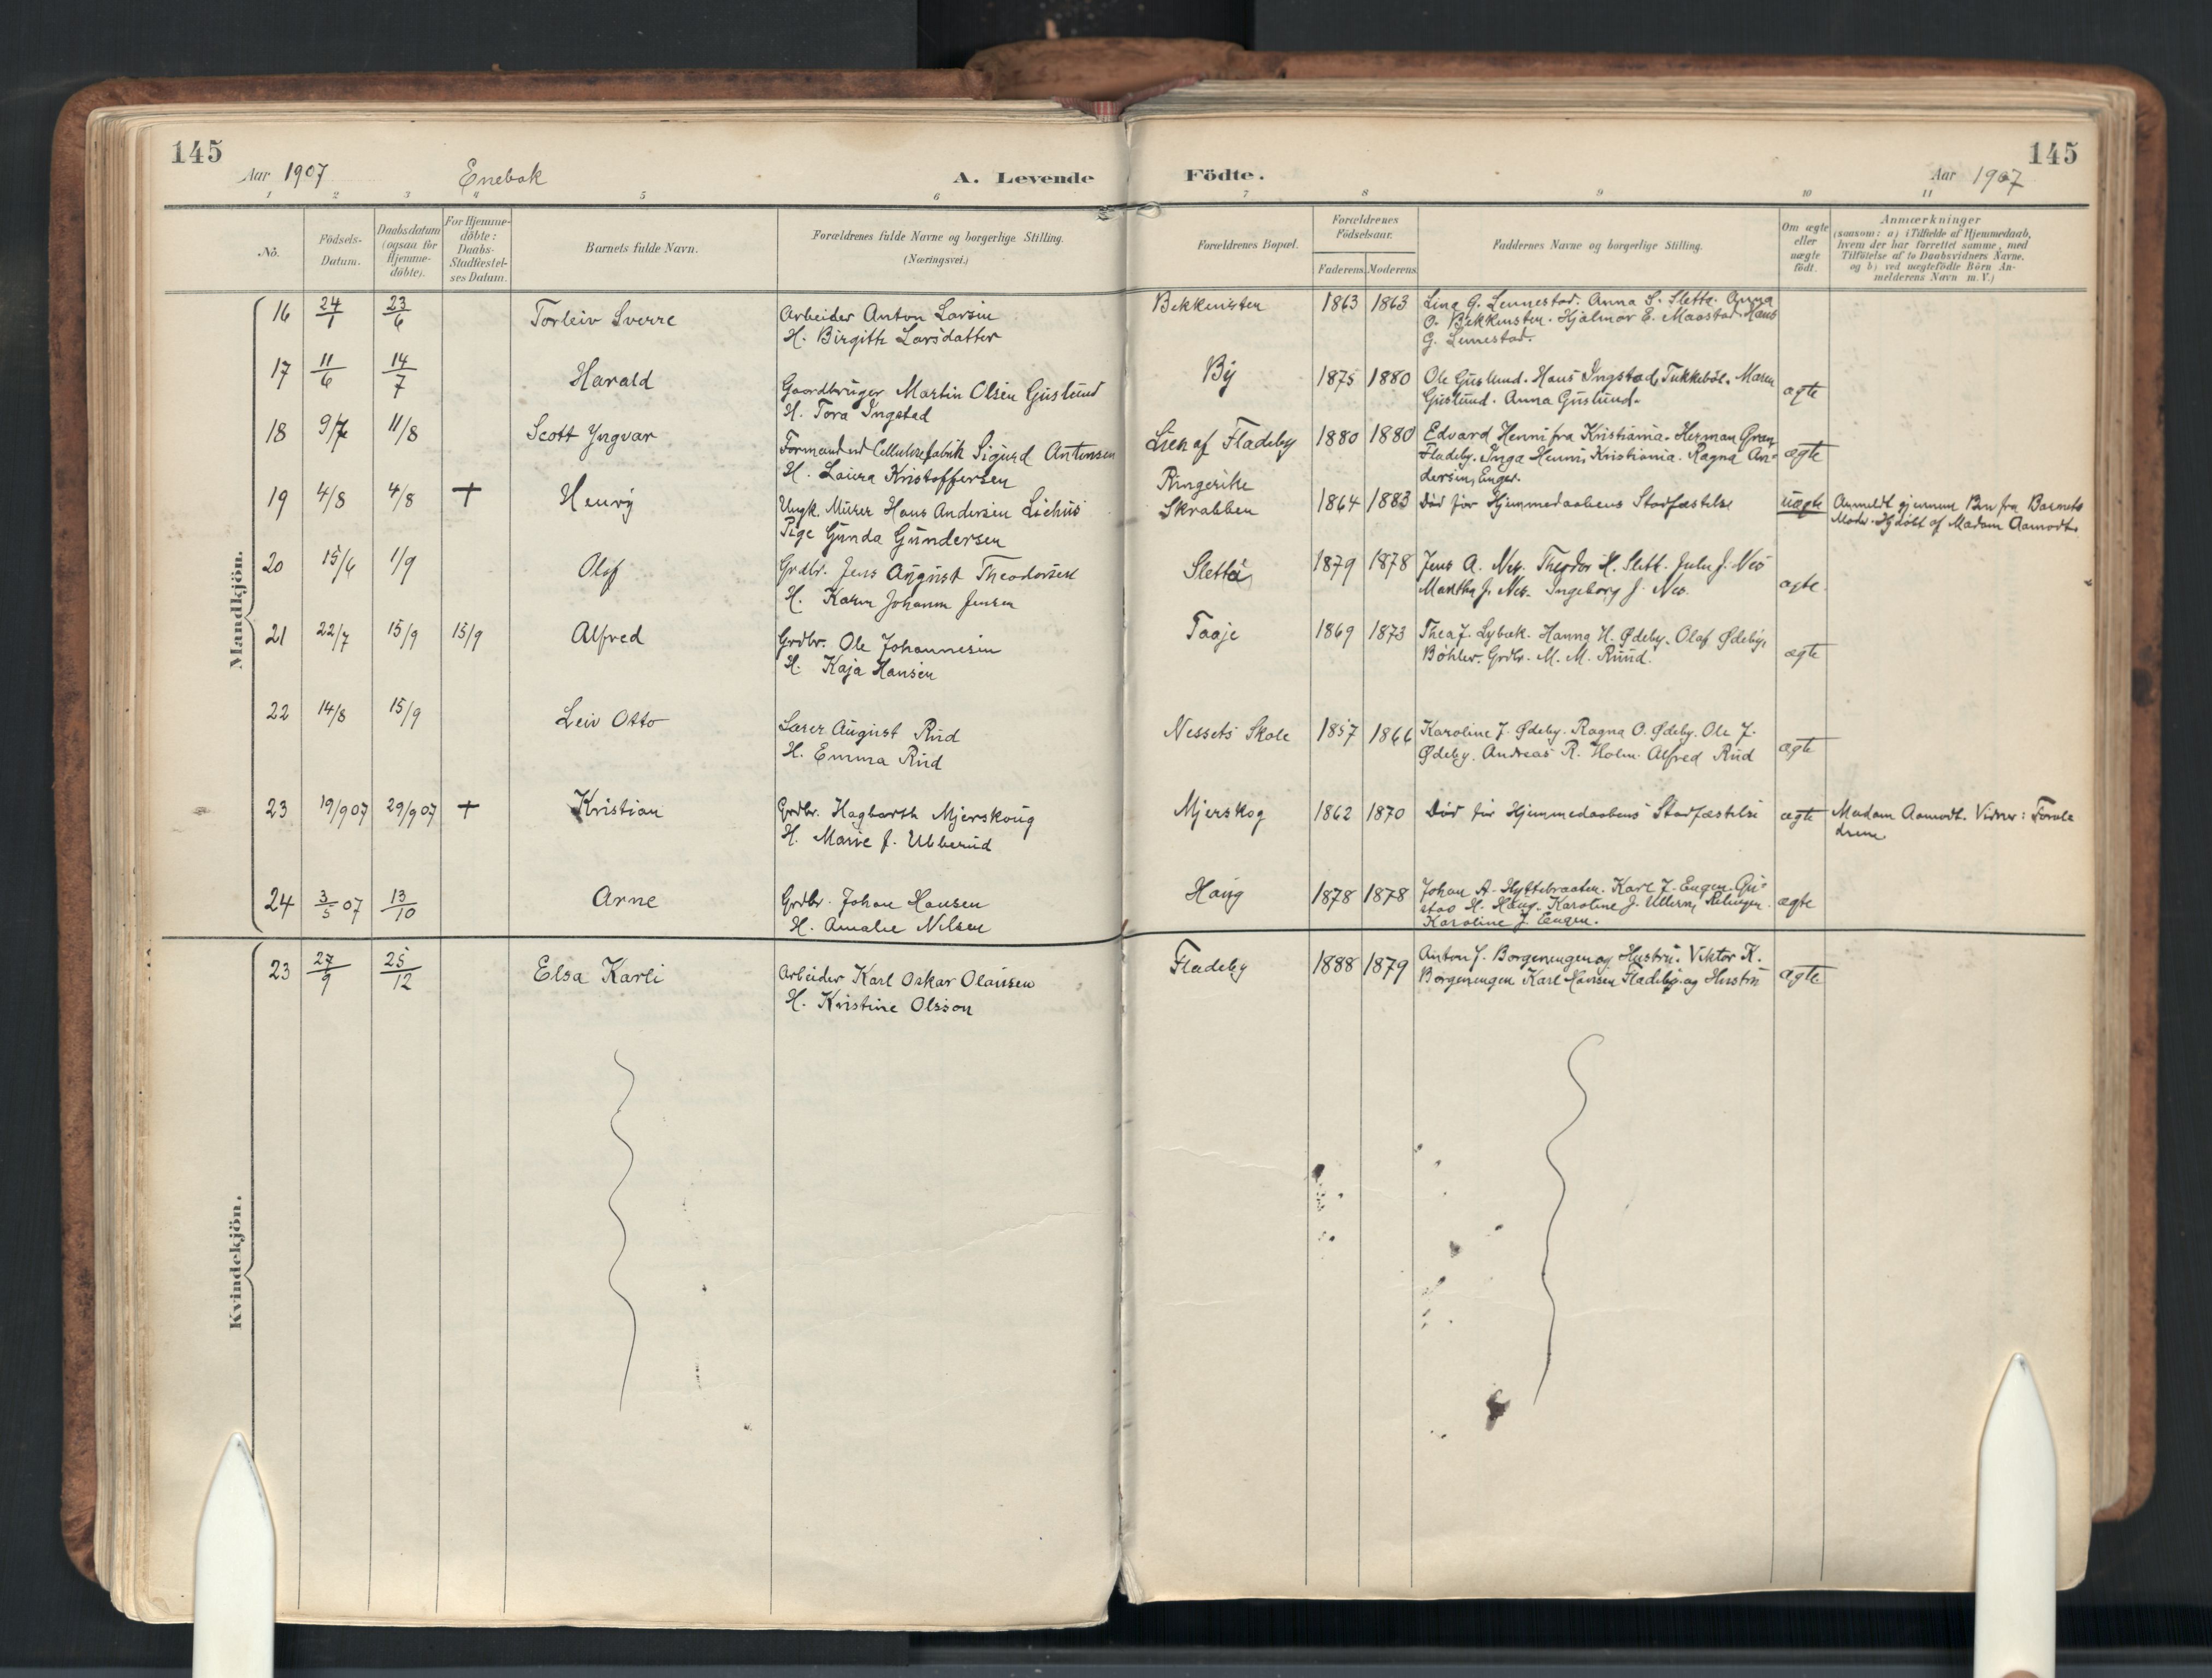 145
145
Aar 1907
Enebak
A. Levende
Födte.
Aar 1907
1 2 3 4 5 6 7 8 9 10 11
No.
Födsels-
Datum.
Daabsdatum
(ogsaa for
Hjemme-
döbte).
For Hjemme-
döbte:
Daabs-
Stadfæstel-
ses Datum.
Barnets fulde Navn.
Forældrenes fulde Navne og borgerlige Stilling.
(Næringsvei.)
Forældrenes Bopæl.
Forældrenes
Födselsaar.
Faderens. Moderens.
Faddernes Navne og borgerlige Stilling.
Om ægte
eller
uægte
födt.
Anmærkninger
(saasom: a) i Tilfælde af Hjemmedaab,
hvem der har forrettet samme, med
Tilföielse af to Daabsvidners Navne.
og b) ved uægtefödte Börn An-
melderens Navn m. V.)
Mandkjön.
16 24/1 23/6 Torleiv Sverre
Arbeider Anton Larsen
H. Birgithe Larsdatter
Bekkensten 1863 1863
Lina G. Lennestad. Anna S. Sletta. Anna
O. Bekkensten. Hjalmar E. Maastad. Hans
G. Lennestad.
17 11/6 14/7 Harald
Gaardbruger Martin Olsen Guslund
H. Tora Ingstad
By 1875 1880
Ole Guslund. Hans Ingstad, Tukkeböl. Maren
Guslund. Anna Guslund.
ægte
18 9/7 11/8 Scott Yngvar
Formand ved Cellulosefabrik Sigurd Antonsen
H. Laura Kristoffersen
Lien af Fladeby 1880 1880
Edvard Henni fra Kristiania. Herman Gran
Fladeby. Inga Henni, Kristiania. Ragna An-
dersen, Enger.
ægte
19 4/8 4/8 + Henry
Ungk. Murer Hans Andersen
Pige Gunda Gundersen
Ringerike
Skrabben
1864 1883
Död för Hjemmedaabens Stadfæstelse
uægte
Anmeldt gjennem Brev fra Barnets
Moder. Hjdöbt af Madam Aamodt.
20 15/6 1/9 Olaf
Grdbr. Jens August Theodorsen
H. Karen Johanne Jensen
Sletta 1879 1878
Jens A. Nes. Theodor H. Slett. Julie J. Nes
Martha J. Nes. Ingeborg J. Nes.
ægte
21 22/7 15/9 15/9 Alfred
Grdbr. Ole Johannesen
H. Kaja Hansen
Taaje 1869 1873
Thea J. Lybæk. Hanna H. Ødeby. Olaf Ødeby,
Böhler. Grdbr. M. M. Ruud.
ægte
22 14/8 15/9 Leiv Otto
Lærer August Rud
H. Emma Rud
Nessets Skole 1857 1866
Karoline J. Ødeby. Ragna O. Ødeby. Ole J.
Ødeby. Andreas R. Holm. Alfred Rud
ægte
23 19/9 07 29/9 07 + Kristian
Grdbr. Hagbarth Mjerskoug
H. Marie J. Ubberud
Mjerskog 1862 1870
Död för Hjemmedaabens Stadfæstelse
ægte
Madam Aamodt. Vidner: Foræl
drene
24 3/5 07 13/10 Arne
Grdbr. Johan Hansen
H. Amalie Nilsen
Haug 1878 1878
Johan A. Hyttebraaten. Karl J. Eugen. Gu-
stav H. Haug. Karoline J. Ullern, Relingen.
Karoline J. Eugen.
ægte
Kvindekjön.
23 27/9 25/12 Elsa Karli
Arbeider Karl Oskar Olausen
H. Kristine Olsson
Fladeby 1888 1879
Anton J. Borgenengen og Hustru. Viktor K.
Borgenengen Karl Hansen Fladeby og Hustru
ægte